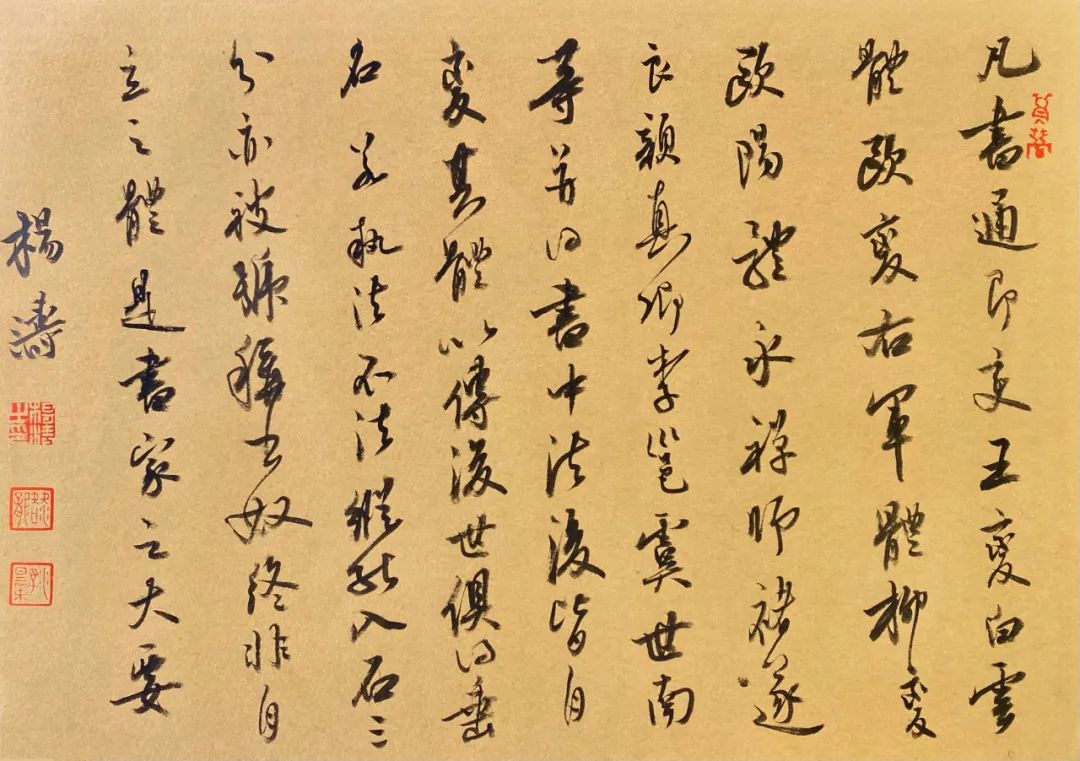 凡書通即變王變白雲
體歐變右軍體柳變
歐陽體永禅師褚遂
良顔真卿李邕虞世南
等并得書中法後皆自
變其體以傳後世俱得垂
名若執法不法縱能入石三
分亦被號稱書奴終非自
立之體是書家之大要
楊濤